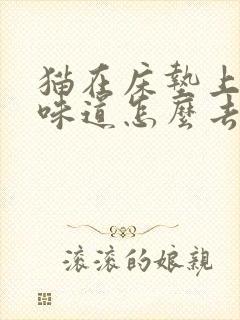 猫在床墊上
味道怎麼去
滾滾的娘親